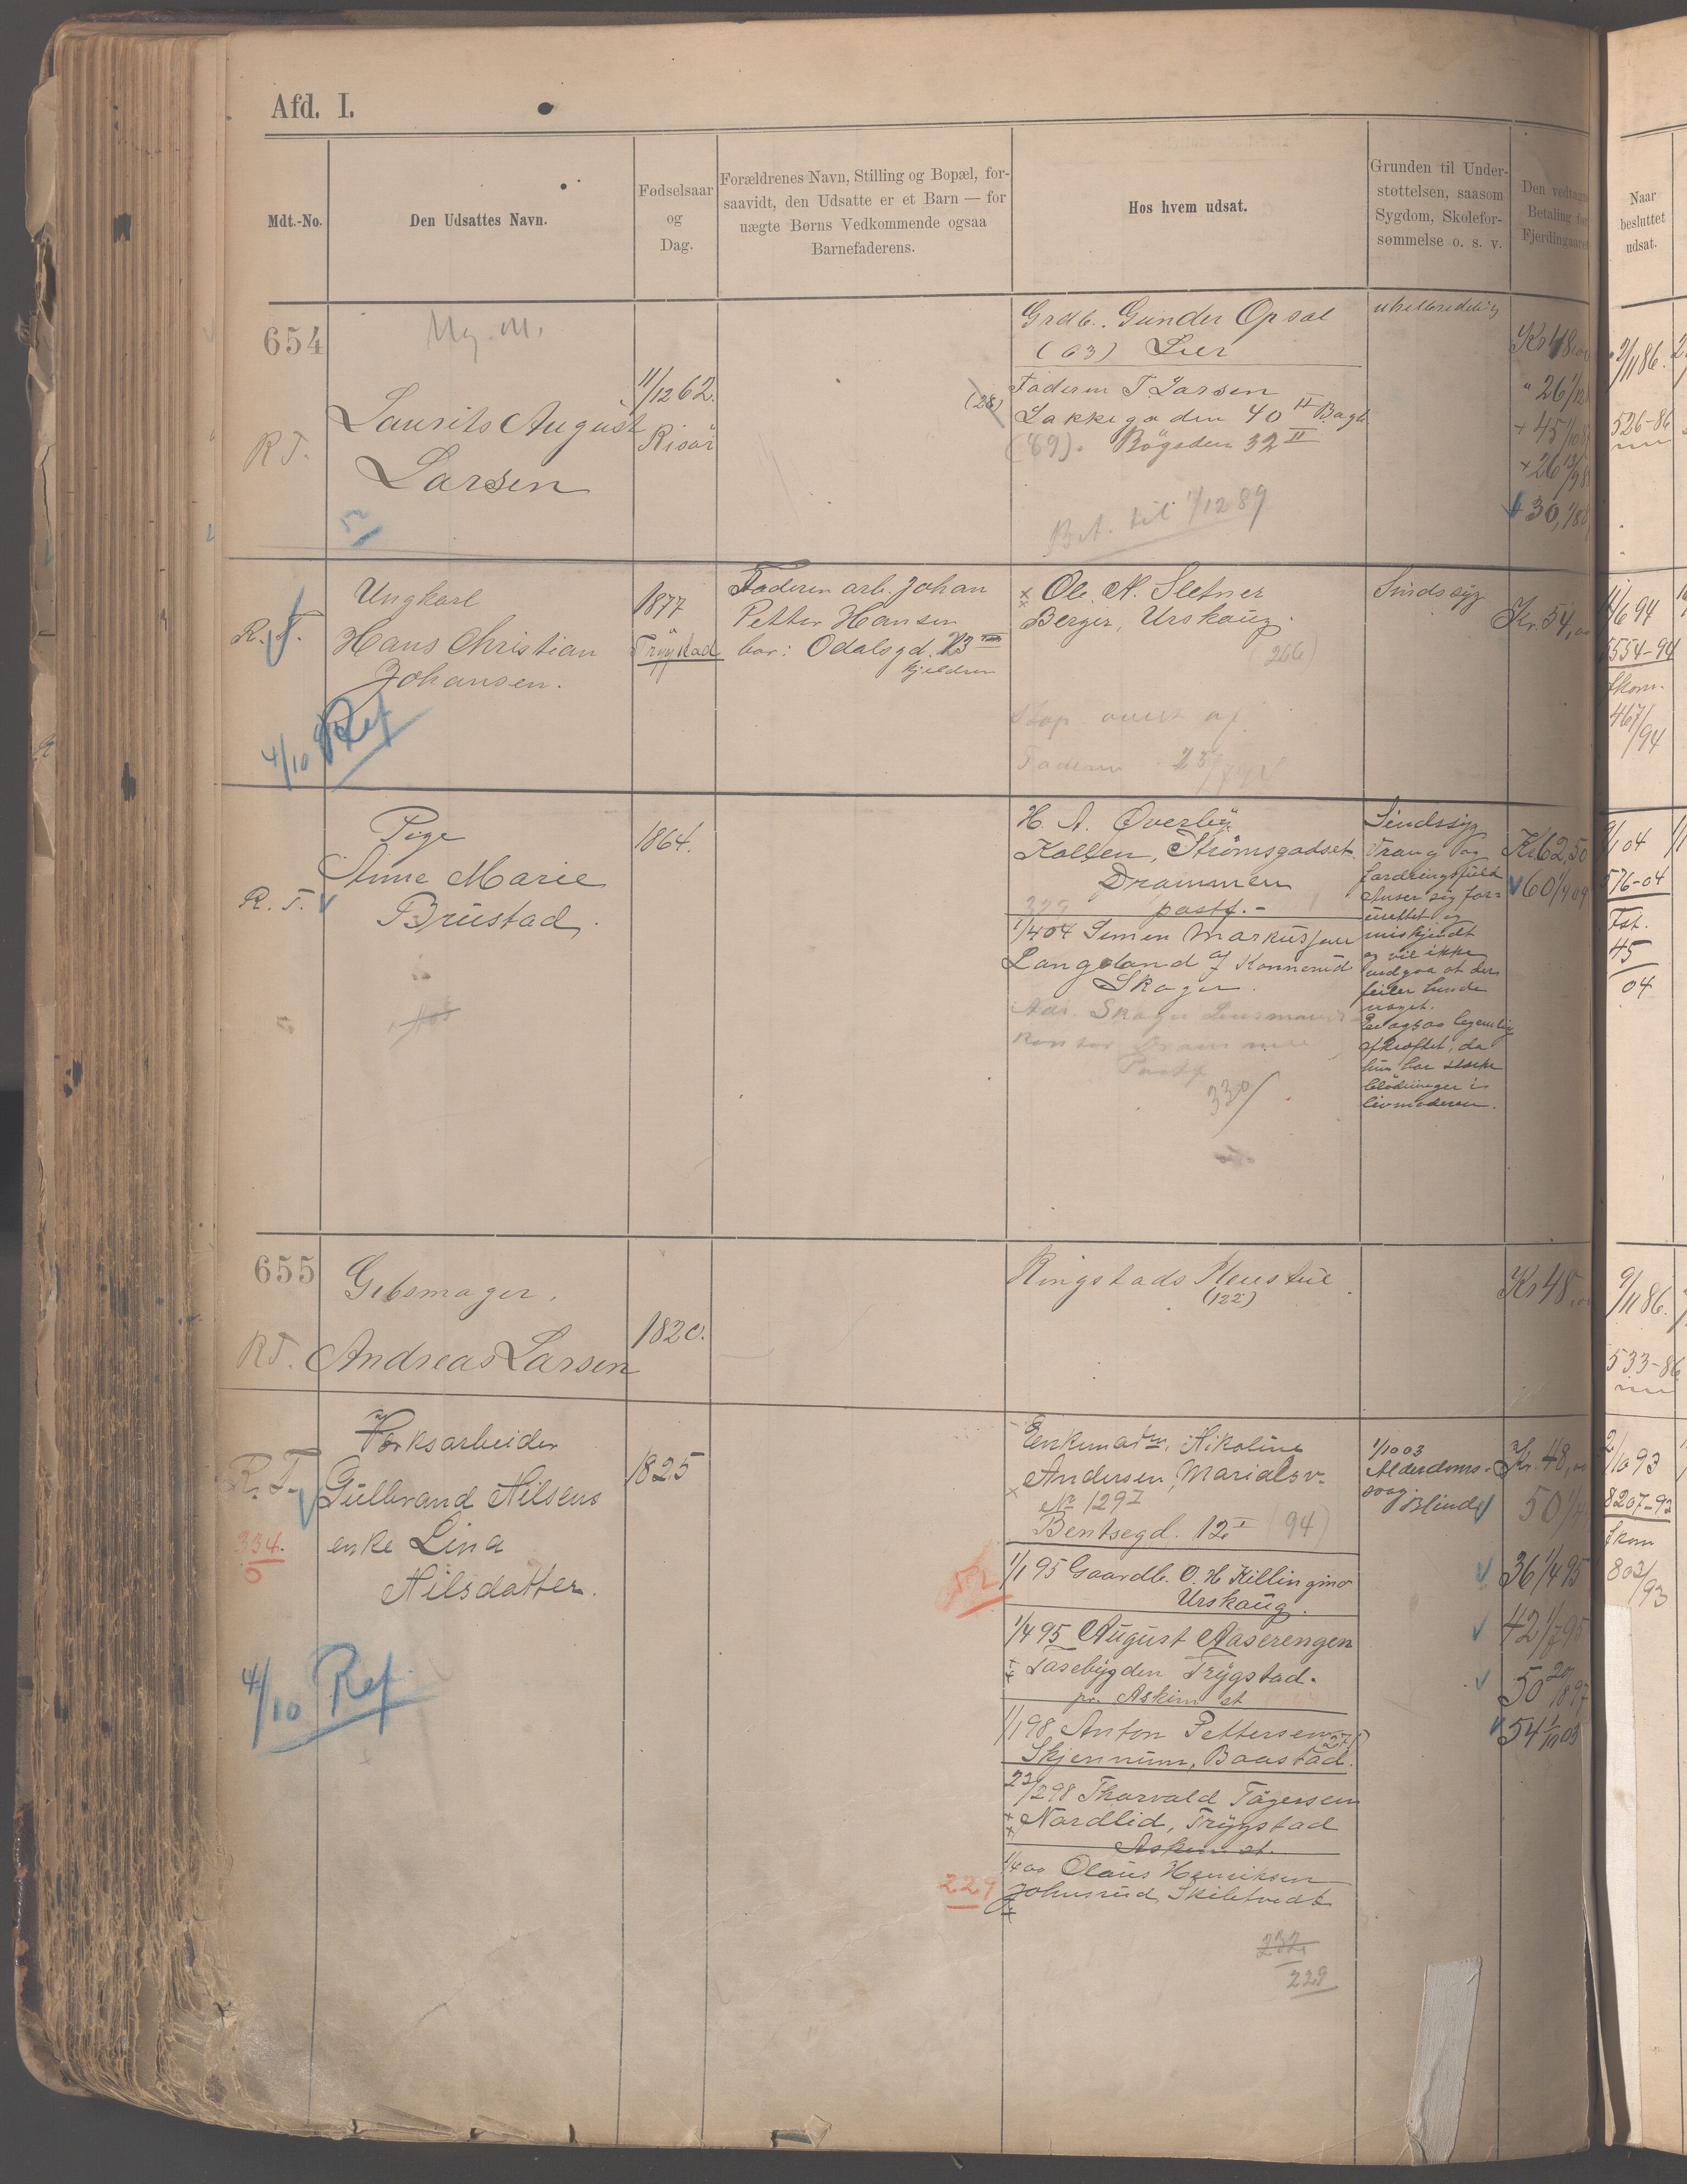 Afd. I.
Mdt.-No.
Den Udsattes Navn.
Fødselsaar
og
Dag.
Forældrenes Navn, Stilling og Bopæl, for-
saavidt, den Udsatte er et Barn — for
uægte Børns Vedkommende ogsaa
Barnefaderens.
Hos hvem udsat.
Grunden til Under-
støttelsen, saasom
Sygdom, Skolefor-
sømmelse o. s. v.
Den vedtagne
Betaling for
Fjerdingaaret
Naar
besluttet
udsat.
654
Ug. M.
R T.
Laurits August
Larsen
11/12 62.
Risör
Grdb. Gunder Opsal
(63) Lier
(28)
Faderen T Larsen
Lakkegaden 40 II Bagb
(89). Bögaden 32 II
Bet. til 1/12 89
uhelbredelig
Kr 48,00
" 26 1/12
+ 45 1/10
+ 26
+ 30, 1/8
2/11 86.
526-86
R. T.
Ungkarl
Hans Christian
Johansen.
4/10 Ref
1877
Trygstad
Faderen arb. Johan
Petter Hansen
bor: Odalsgd. 23 III
kjelderen
Ole N. Sletner
Berger, Urskoug.
(266)
Faderen
Sindssyg
Kr. 54,00
11/6 94
5554-94
fkom.
467/94
R. T.
Pige
Anne Marie
Brustad.
1864.
H. A. Överby
Kolfen, Strömsgodset.
Drammen
329 postf.-
1/4 04 Simen Markussen
Langeland af Konnerud
Skoger.
Adr. Skoger Lensmands
kontor Drammen
Postf
330/
Sindssyg
Trang og
fordringsfuld
Anser sig for-
urettet og
miskjendt
og vil ikke
indgaa at der
feiler hende
noget.
Er ogsaa legemlig
afkræftet, da
hun har stærke
blödninger i
livmoderen.
Kr 62,50
60 1/4 04
1/1 04
576-04
Fst.
45
04
655
R T.
Gibsmager.
Andreas Larsen
1820.
Ringstads Pleiestue
(122)
Kr 48,00
9/11 86.
533-86
R. T.
334.
0
Værksarbeider
Gulbrand Nilsens
enke Lina
Nilsdatter.
4/10 Ref.
1825
Enkemadm. Nikoline
Andersen, Maridalsv.
No 129 I
Bentsegd. 12 I (94)
52
1/1 95 Gaardb. O. H Killingmo
Urskoug.
1/4 95 August Aaserengen
Lasebygden Trygstad.
pr. Askim st
1/1 98 Anton Pettersen
Skjennum, Baastad.
22/2 98 Thorvald Tögersen
Nordlid, Trygstad
Askim st.
1/4 00 Olaus Henriksen
229 Johnsrud, Skiptvedt
232
229
1/10 03
Alderdoms-
svag.
Blind
Kr. 48,00
50 1/4
36 1/4 95
42 1/7 95
50 20/8 97
54 1/11 03
2/10 93
8207-93
fkom
802/93